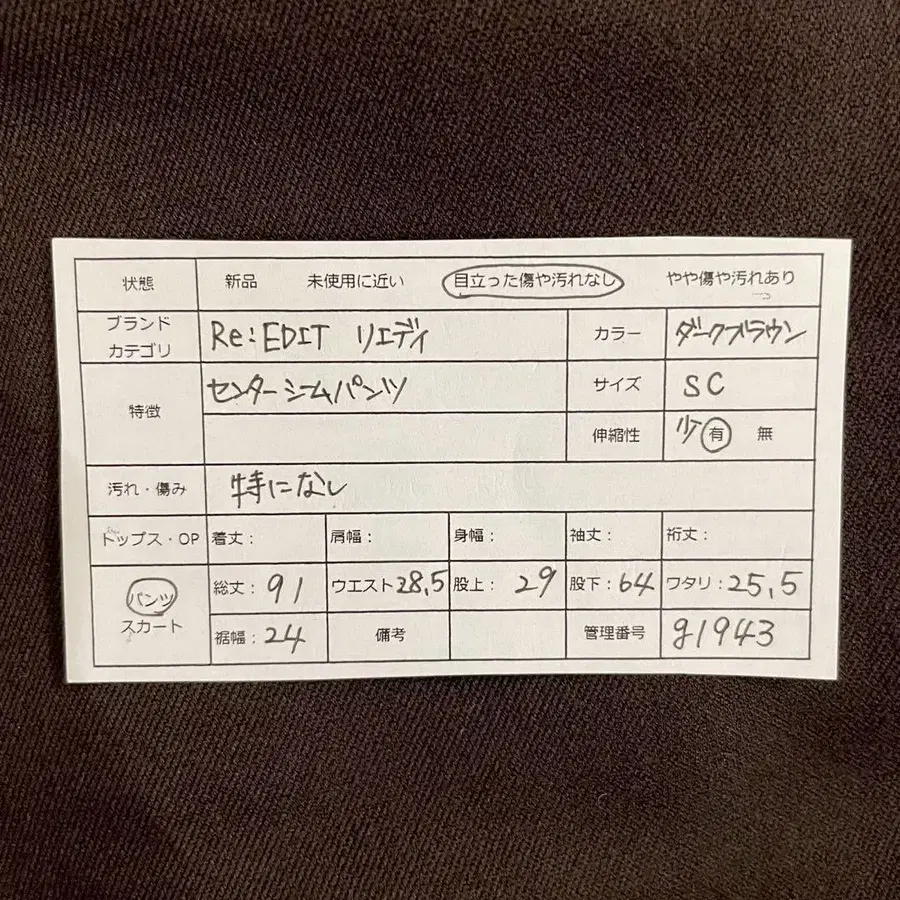 状態 新品 未使用に近い 目立った傷や汚れなし やや傷や汚れあり
ブランド カテゴリ Re:EDIT リエディ カラー ダークブラウン
特徴 センターシームパンツ サイズ SC
伸縮性 少 有 無
汚れ・傷み 特になし
トップス・OP 着丈: 肩幅: 身幅: 袖丈: 裄丈:
パンツ スカート 総丈: 91 ウエスト 38,5 股上: 29 股下: 64 ワタリ: 25,5
裾幅: 24 備考 管理番号 g1943